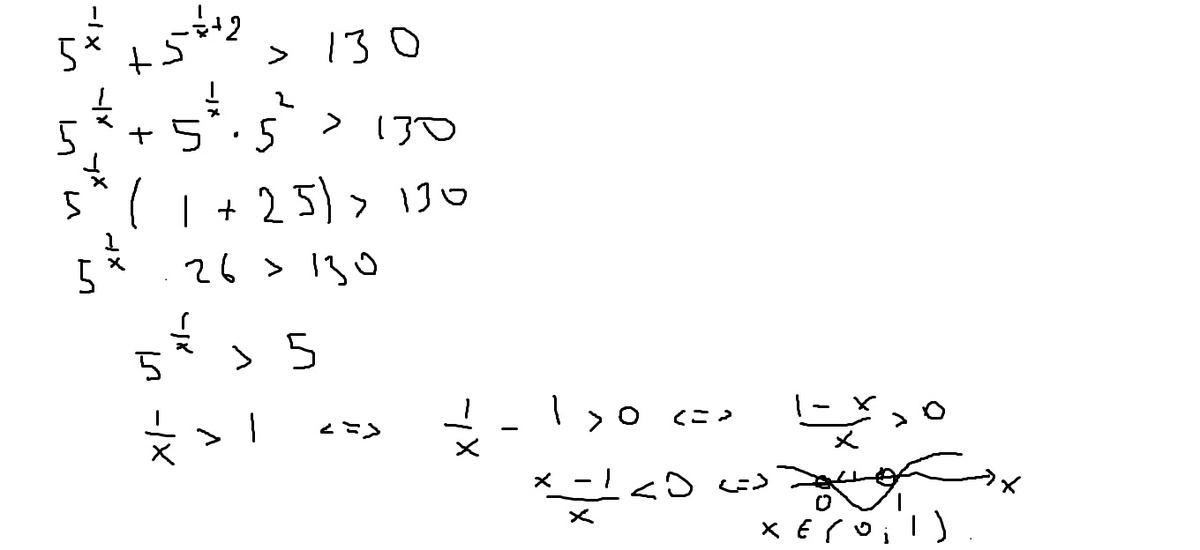 5^{\frac{1}{x}} + 5^{\frac{1}{x}+2} > 130
5^{\frac{1}{x}} + 5^{\frac{1}{x}} \cdot 5^2 > 130
5^{\frac{1}{x}} ( 1 + 25) > 130
5^{\frac{1}{x}} \cdot 26 > 130
5^{\frac{1}{x}} > 5
\frac{1}{x} > 1 <=> \frac{1}{x} - 1 > 0 <=> \frac{1-x}{x} > 0
\frac{x-1}{x} < 0 <=> x
0 1
x ∈ (0; 1)